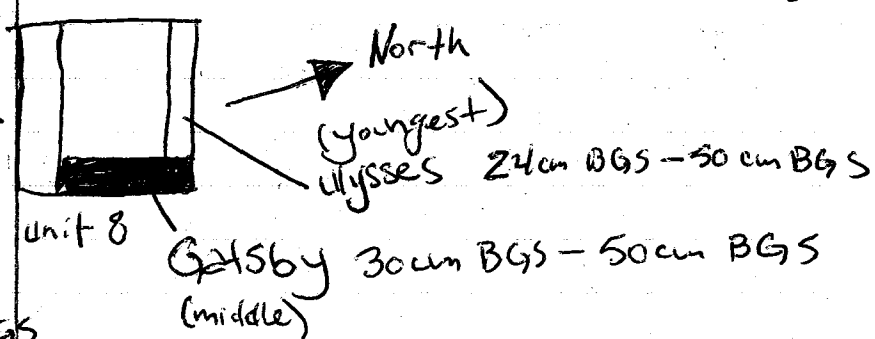 North
(youngest)
Ulysses 24cm BGS - 50 cm BGS
unit 8
Gatsby 30cm BGS - 50cm BGS
(middle)
GS